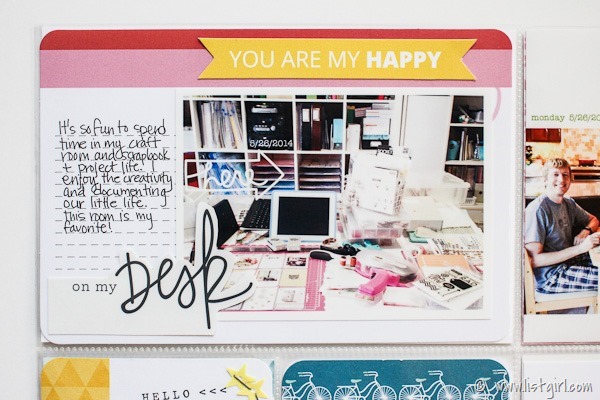 YOU ARE MY HAPPY
It's so fun to spend
time in my craft
room and scrapbook
+ project life.
enjoy the creativity
and documenting
our little life.
this room is my
favorite!
5/26/2014
here
on my Desk
monday 5/26/2014
HELLO <<<
© www.listgirl.com